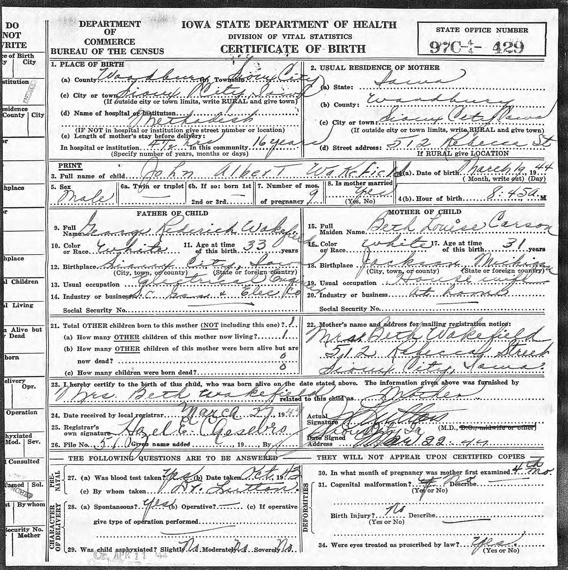 DO
NOT
WRITE
DEPARTMENT
OF
COMMERCE
BUREAU OF THE CENSUS
IOWA STATE DEPARTMENT OF HEALTH
DIVISION OF VITAL STATISTICS
CERTIFICATE OF BIRTH
STATE OFFICE NUMBER
429
1. PLACE OF BIRTH
(a) County Woodbury or Township Sioux City
(c) City or town Sioux City, Iowa
(If outside city or town limits, write RURAL and give town)
(d) Name of hospital or institution Methodist
(IF NOT in hospital or institution give street number or location)
(e) Length of mother's stay before delivery:
In hospital or institution 4½ hrs In this community 16 years
(Specify number of years, months or days)
2. USUAL RESIDENCE OF MOTHER
(a) State: Iowa
(b) County: Woodbury
(c) City or town Sioux City, Iowa
(If outside city or town limits, write RURAL and give town)
(d) Street address: 3712 Rebecca St
If RURAL give LOCATION
PRINT
3. Full name of child John Albert Wakefield
4(a). Date of birth. March 19 44
(Month, write out) (Day)
5. Sex Male
6a. Twin or triplet?
6b. If so: born 1st
2nd or 3rd
7. Number of mos. of pregnancy 9
8. Is mother married Yes
(Yes, No)
4(b). Hour of birth 8:45 a. M
FATHER OF CHILD
9. Full Name Wakefield
10. Color or Race. White
11. Age at time of this birth 33 years
12. Birthplace Sioux City, Iowa
(City, town, or county) (State or foreign country)
13. Usual occupation
14. Industry or business S.C. Gas & Elec Co
Social Security No.
MOTHER OF CHILD
15. Full Maiden Name. Beth Louise Carson
16. Color or Race. White
17. Age at time of this birth 31 years
18. Birthplace Jackson Michigan
(City, town, or county) (State or foreign country)
19. Usual occupation Housewife
20. Industry or business at home
Social Security No.
21. Total OTHER children born to this mother (NOT including this one)? 1
(a) How many OTHER children of this mother now living? 1
(b) How many OTHER children were born alive but are now dead? 0
(c) How many children were born dead? 0
22. Mother's name and address for mailing registration notice:
Mrs. Beth Wakefield
3712 Rebecca Street
Sioux City, Iowa
23. I hereby certify to the birth of this child, who was born alive on the date stated above. The information given above was furnished by
Mrs. Beth Wakefield related to this child as Mother
24. Date received by local registrar March 27 1944
25. Registrar's own signature
26. File No. Given name added 19 By
Actual Signature (M.D., D.O., midwife or other)
Date Signed Mar 22 44
Address
THE FOLLOWING QUESTIONS ARE TO BE ANSWERED
THEY WILL NOT APPEAR UPON CERTIFIED COPIES
PRE-NATAL
27. (a) Was blood test taken? Yes (b) Date taken Oct. 43
(c) By whom taken
CHARACTER OF DELIVERY
28. (a) Spontaneous? Yes (b) Operative? (c) If operative
give type of operation performed
29. Was child asphyxiated? Slightly No. Moderately No. Severely No.
30. In what month of pregnancy was mother first examined 4th Mo.
DEFORMITIES
31. Congenital malformation? No Describe
(Yes or No)
Birth Injury? No Describe
(Yes or No)
34. Were eyes treated as prescribed by law? Yes
(Yes or No)